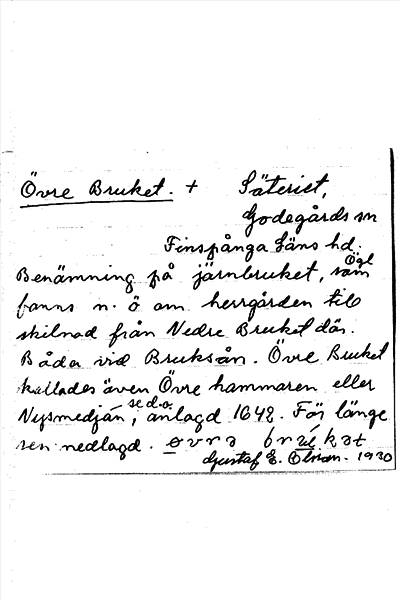 Övre Bruket. + Säteriet,
Godegårds sn
Finspånga Läns hd.
Ögl
Benämning på järnbruket, som
fanns n. ö om herrgården till
skilnad från Nedre Bruket där.
Båda vid Bruksån. Övre Bruket
kallades även Övre hammaren eller
se d.o.
Nysmedjan, anlagd 1642. För länge
sen nedlagd. øvrə brʉ́kət
Gustaf E. Olsson. 1930